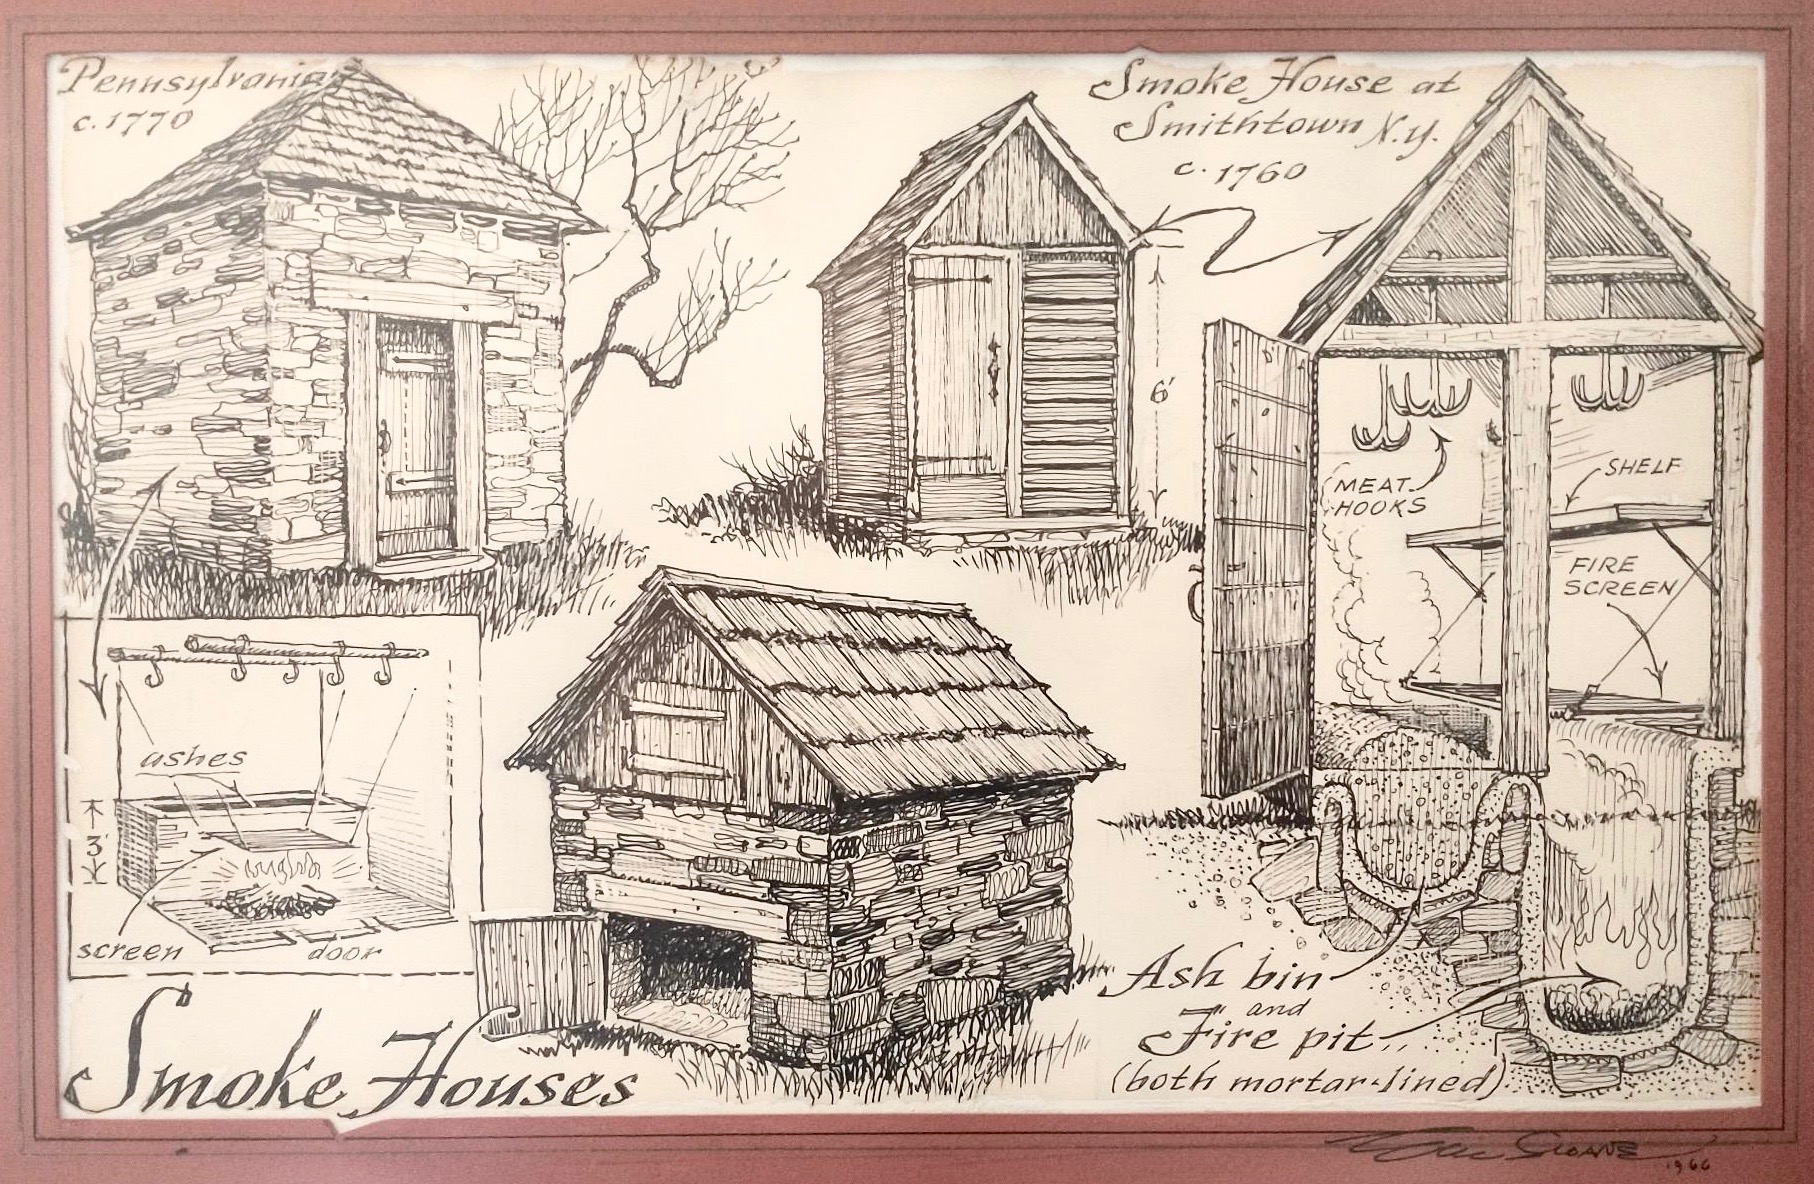 Pennsylvania
c. 1770
Smoke House at
Smithtown N.Y.
c. 1760
6'
MEAT
HOOKS
SHELF
FIRE
SCREEN
ashes
3'
screen
door
Ash bin
and
Fire pit..
(both mortar-lined)
Smoke Houses
Eric SLOANE
1966